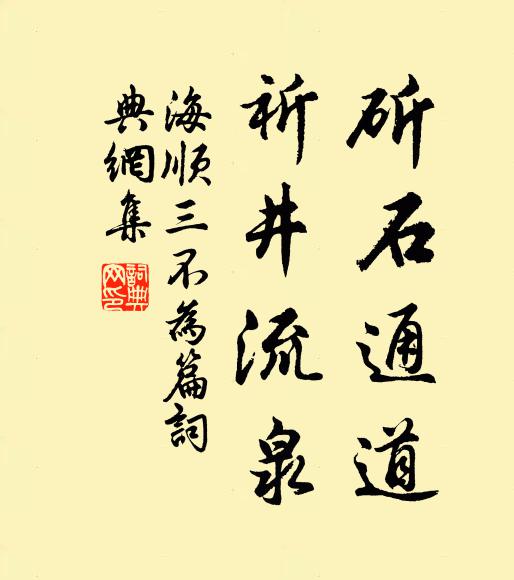 斫石通道
祈井流泉
海順三不為篇詞
典網集
詞典
网印